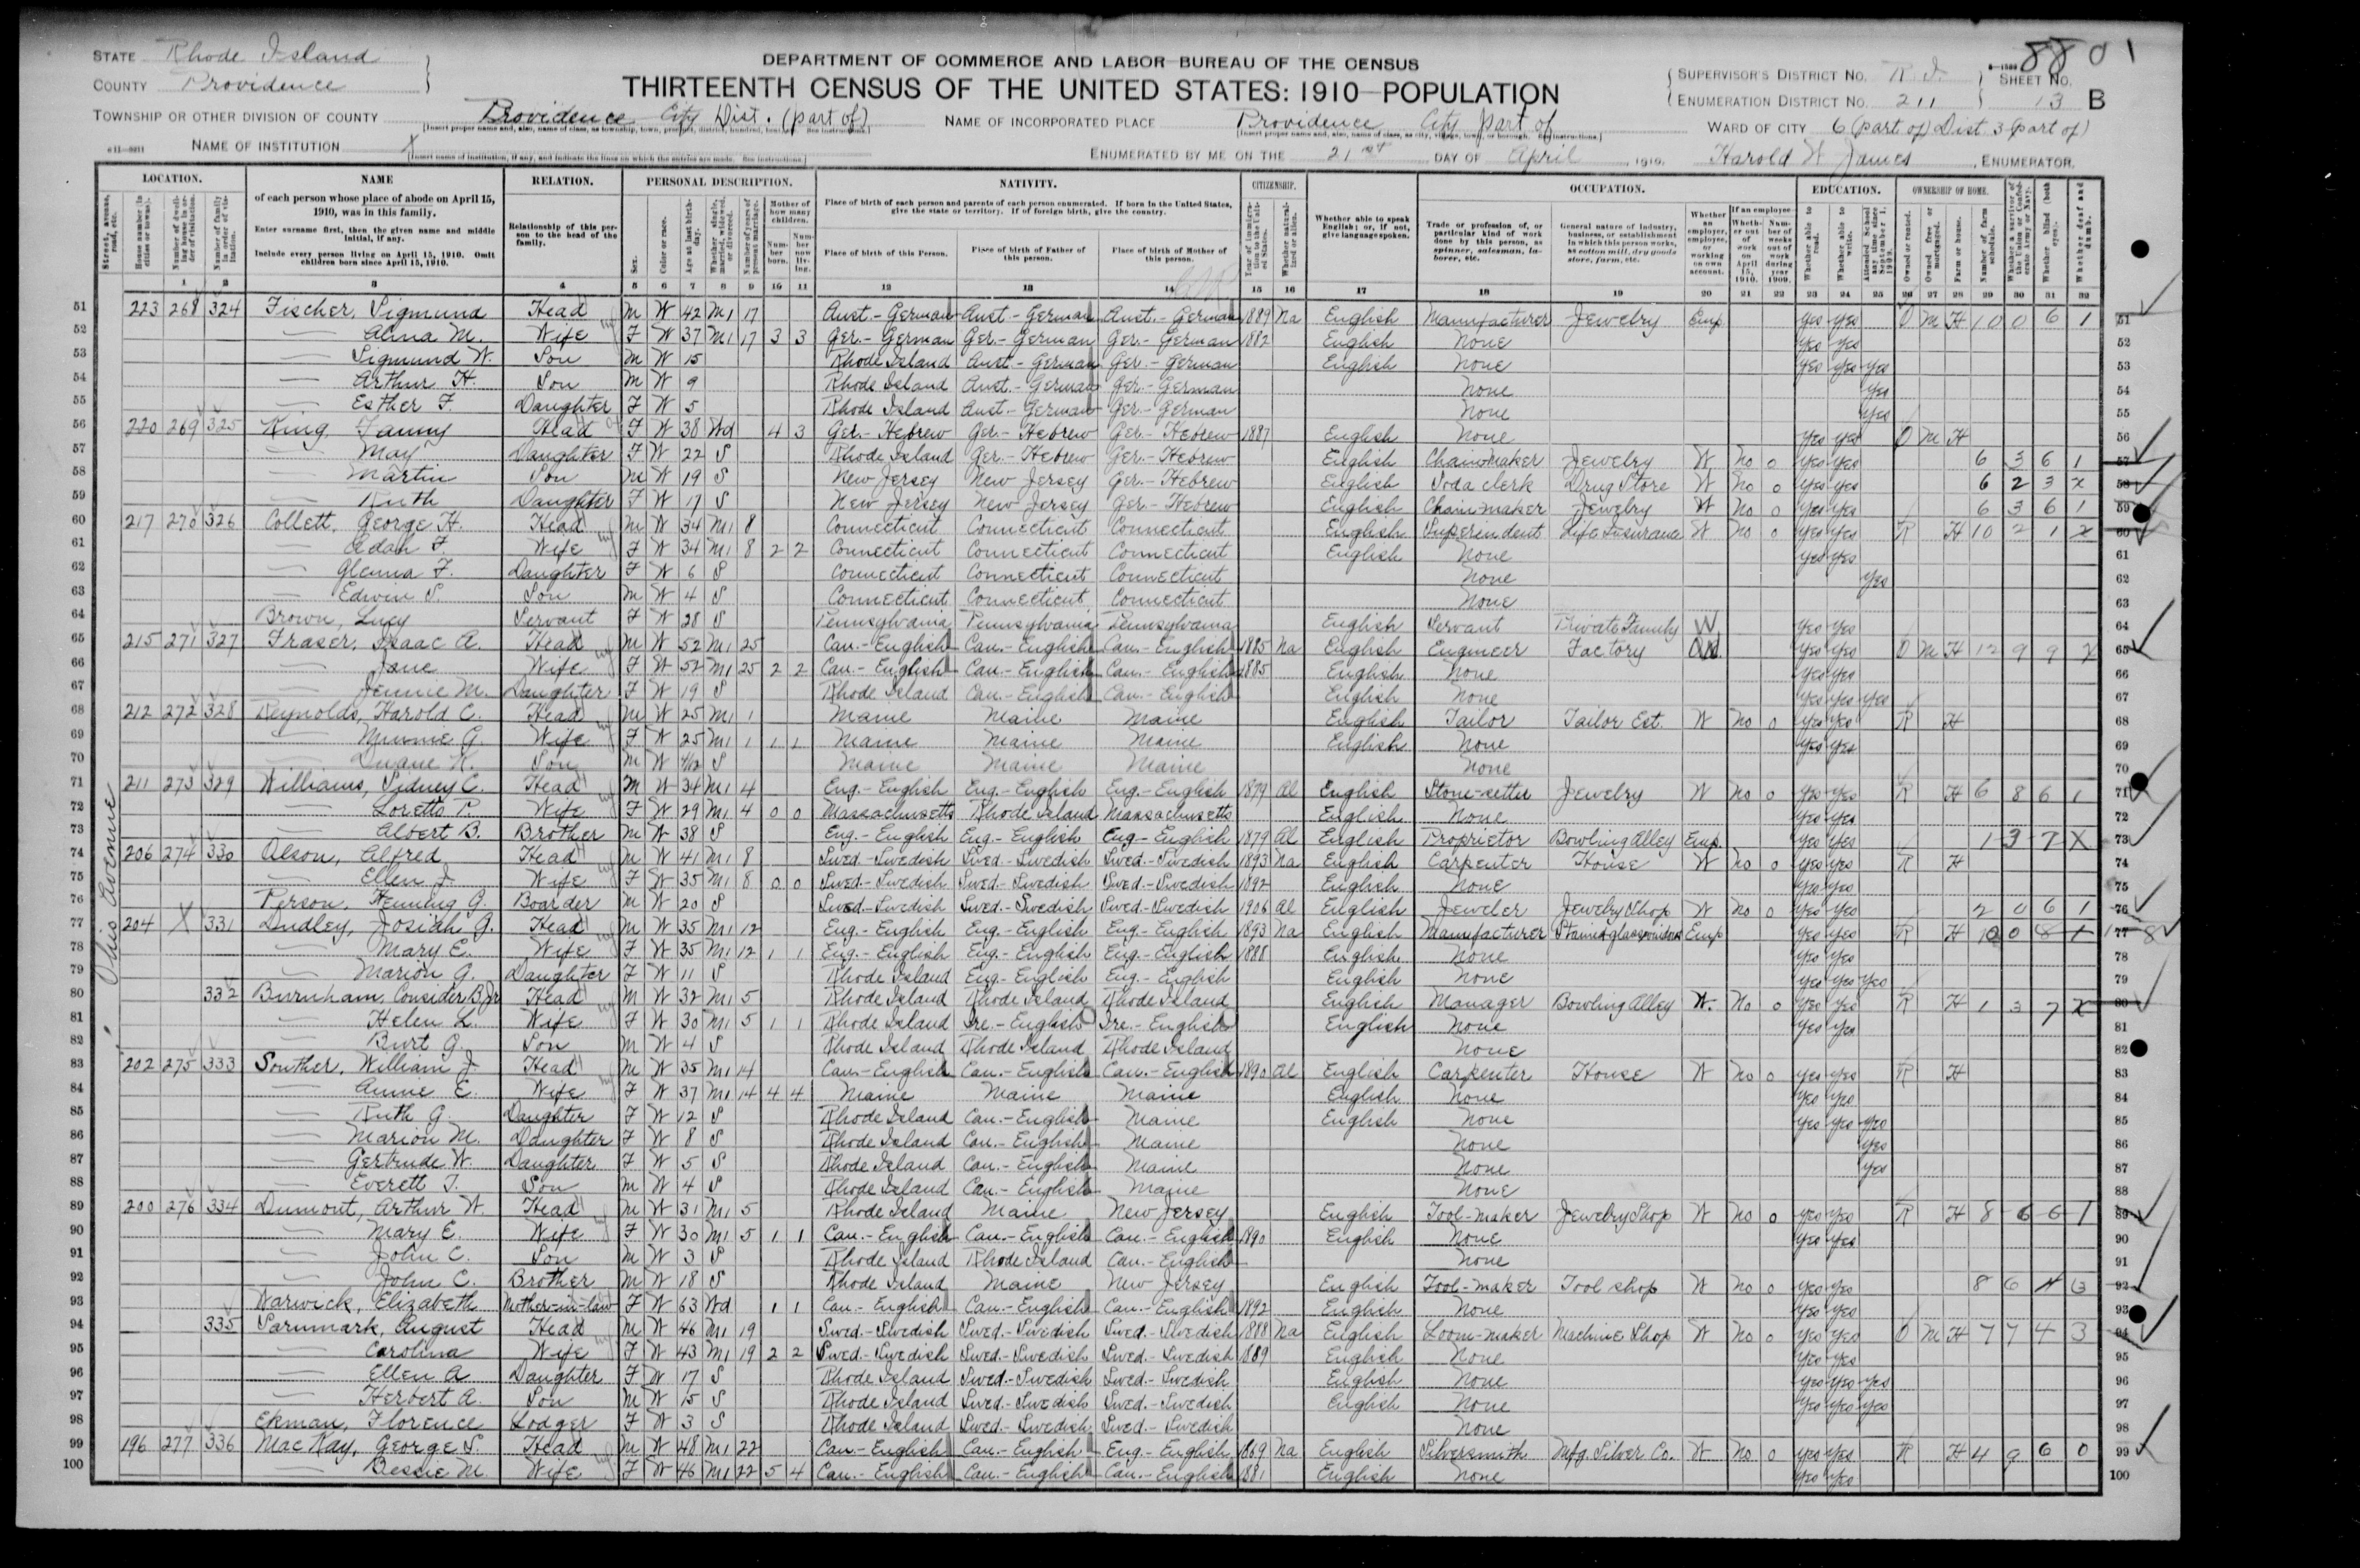 8801
STATE Rhode Island
COUNTY Providence
TOWNSHIP OR OTHER DIVISION OF COUNTY Providence City Dist. (part of)
NAME OF INSTITUTION X
DEPARTMENT OF COMMERCE AND LABOR—BUREAU OF THE CENSUS
THIRTEENTH CENSUS OF THE UNITED STATES: 1910—POPULATION
NAME OF INCORPORATED PLACE Providence City part of
ENUMERATED BY ME ON THE 21st DAY OF April, 1910. Harold W. James, ENUMERATOR.
SUPERVISOR'S DISTRICT No. R.I.
ENUMERATION DISTRICT No. 211
SHEET No. 13 B
WARD OF CITY 6 (part of) Dist 3 (part of)
LOCATION. NAME RELATION. PERSONAL DESCRIPTION. NATIVITY. CITIZENSHIP. OCCUPATION. EDUCATION. OWNERSHIP OF HOME.
of each person whose place of abode on April 15, 1910, was in this family.
Enter surname first, then the given name and middle initial, if any.
Include every person living on April 15, 1910. Omit children born since April 15, 1910.
Relationship of this person to the head of the family.
Place of birth of each person and parents of each person enumerated. If born in the United States, give the state or territory. If of foreign birth, give the country.
Place of birth of this Person. Place of birth of Father of this person. Place of birth of Mother of this person.
Whether able to speak English; or, if not, give language spoken.
Trade or profession of, or particular kind of work done by this person, as spinner, salesman, laborer, etc.
General nature of industry, business, or establishment in which this person works, as cotton mill, dry goods store, farm, etc.
51 223 268 324 Fischer, Sigmund Head M W 42 M1 17 Aust.-German Aust-German Aust.-German 1889 Na English Manufacturer Jewelry Emp Yes Yes O M H 10 0 6 1 51
52 — Alina M. Wife F W 37 M1 17 3 3 Ger.-German Ger-German Ger-German 1882 English None Yes Yes 52
53 — Sigmund W. Son M W 15 Rhode Island Aust-German Ger-German English None Yes Yes Yes 53
54 — Arthur H. Son M W 9 Rhode Island Aust-German Ger-German None Yes 54
55 — Esther F. Daughter F W 5 Rhode Island Aust-German Ger-German None Yes 55
56 220 269 325 King, Fanny Head F W 38 Wd 4 3 Ger-Hebrew Ger-Hebrew Ger-Hebrew 1887 English None Yes Yes O M H 56
57 — May Daughter F W 22 S Rhode Island Ger-Hebrew Ger-Hebrew English Chainmaker Jewelry W No 0 Yes Yes 6 3 6 1 57
58 — Martin Son M W 19 S New Jersey New Jersey Ger-Hebrew English Soda clerk Drug Store W No 0 Yes Yes 6 2 3 X 58
59 — Ruth Daughter F W 17 S New Jersey New Jersey Ger-Hebrew English Chainmaker Jewelry W No 0 Yes Yes 6 3 6 1 59
60 217 270 326 Collett, George H. Head M W 34 M1 8 Connecticut Connecticut Connecticut English Superindent Life Insurance W No 0 Yes Yes R H 10 2 1 X 60
61 — Adah F. Wife F W 34 M1 8 2 2 Connecticut Connecticut Connecticut English None Yes Yes 61
62 — Glenna F. Daughter F W 6 S Connecticut Connecticut Connecticut None Yes 62
63 — Edwin S. Son M W 4 S Connecticut Connecticut Connecticut None 63
64 Brown, Lucy Servant F W 28 S Pennsylvania Pennsylvania Pennsylvania English Servant Private Family W Yes Yes 64
65 215 271 327 Fraser, Isaac A. Head M W 52 M1 25 Can.-English Can.-English Can.-English 1885 Na English Engineer Factory Yes Yes O M H 12 9 9 X 65
66 — Jane Wife F W 52 M1 25 2 2 Can-English Can-English Can.-English 1885 English None Yes Yes 66
67 — Jennie M. Daughter F W 19 S Rhode Island Can.-English Can.-English English None Yes Yes Yes 67
68 212 272 328 Reynolds, Harold C. Head M W 25 M1 1 Maine Maine Maine English Tailor Tailor Est. W No 0 Yes Yes R H 68
69 — Minnie G. Wife F W 25 M1 1 1 1 Maine Maine Maine English None Yes Yes 69
70 — Duane R. Son M W 4/12 S Maine Maine Maine None 70
71 211 273 329 Williams, Sidney C. Head M W 34 M1 4 Eng.-English Eng.-English Eng.-English 1879 Al English Stone-setter Jewelry W No 0 Yes Yes R H 6 8 6 1 71
72 — Loretto P. Wife F W 29 M1 4 0 0 Massachusetts Rhode Island Massachusetts English None Yes Yes 72
73 — Albert B. Brother M W 38 S Eng-English Eng-English Eng-English 1879 Al English Proprietor Bowling Alley Emp. Yes Yes 1 3 7 X 73
74 206 274 330 Olson, Alfred Head M W 41 M1 8 Swed-Swedish Swed.-Swedish Swed.-Swedish 1893 Na English Carpenter House W No 0 Yes Yes R H 74
75 — Ellen J. Wife F W 35 M1 8 0 0 Swed.-Swedish Swed.-Swedish Swed.-Swedish 1892 English None Yes Yes 75
76 Person, Heming G. Boarder M W 20 S Swed.-Swedish Swed.-Swedish Swed.-Swedish 1906 Al English Jeweler Jewelry Shop W No 0 Yes Yes 2 0 6 1 76
77 204 X 331 Dudley, Josiah G. Head M W 35 M1 12 Eng.-English Eng.-English Eng-English 1893 Na English Manufacturer Stained glass windows Emp Yes Yes R H 10 0 8 1 77
78 — Mary E. Wife F W 35 M1 12 1 1 Eng.-English Eng.-English Eng.-English 1888 English None Yes Yes 78
79 — Marion G. Daughter F W 11 S Rhode Island Eng-English Eng.-English English None Yes Yes Yes 79
80 332 Burnham, Consider B Jr Head M W 32 M1 5 Rhode Island Rhode Island Rhode Island English Manager Bowling Alley W. No 0 Yes Yes R H 1 3 7 X 80
81 — Helen L. Wife F W 30 M1 5 1 1 Rhode Island Ire.-English Ire.-English English None Yes Yes 81
82 — Burt G. Son M W 4 S Rhode Island Rhode Island Rhode Island None 82
83 202 275 333 Souther, William J. Head M W 35 M1 14 Can-English Can.-English Can.-English 1890 Al English Carpenter House W No 0 Yes Yes R H 83
84 — Annie E. Wife F W 37 M1 14 4 4 Maine Maine Maine English None Yes Yes 84
85 — Ruth G. Daughter F W 12 S Rhode Island Can.-English Maine English None Yes Yes Yes 85
86 — Marion M. Daughter F W 8 S Rhode Island Can.-English Maine None Yes 86
87 — Gertrude W. Daughter F W 5 S Rhode Island Can.-English Maine None Yes 87
88 — Everett T. Son M W 4 S Rhode Island Can.-English Maine None 88
89 200 276 334 Dumont, Arthur W. Head M W 31 M1 5 Rhode Island Maine New Jersey English Tool-maker Jewelry Shop W No 0 Yes Yes R H 8 6 6 1 89
90 — Mary E. Wife F W 30 M1 5 1 1 Can.-English Can.-English Can.-English 1890 English None Yes Yes 90
91 — John C. Son M W 3 S Rhode Island Rhode Island Can.-English None 91
92 — John C. Brother M W 18 S Rhode Island Maine New Jersey English Tool-maker Tool shop W No 0 Yes Yes 8 6 4 3 92
93 Warwick, Elizabeth Mother-in-law F W 63 Wd 1 1 Can-English Can-English Can-English 1892 English None Yes Yes 93
94 335 Sarnmark, August Head M W 46 M1 19 Swed.-Swedish Swed.-Swedish Swed.-Swedish 1888 Na English Loom-maker Machine Shop W No 0 Yes Yes O M H 7 7 4 3 94
95 — Carolina Wife F W 43 M1 19 2 2 Swed.-Swedish Swed.-Swedish Swed.-Swedish 1889 English None Yes Yes 95
96 — Ellen A Daughter F W 17 S Rhode Island Swed.-Swedish Swed.-Swedish English None Yes Yes Yes 96
97 — Herbert A. Son M W 15 S Rhode Island Swed.-Swedish Swed.-Swedish English None Yes Yes Yes 97
98 Ekman, Florence Lodger F W 3 S Rhode Island Swed.-Swedish Swed.-Swedish None 98
99 196 277 336 MacKay, George S. Head M W 48 M1 22 Can-English Can.-English Eng.-English 1869 Na English Silversmith Mfg. Silver Co. W No 0 Yes Yes R H 4 9 6 0 99
100 — Bessie M. Wife F W 46 M1 22 5 4 Can.-English Can.-English Can.-English 1881 English None Yes Yes 100
Avenue